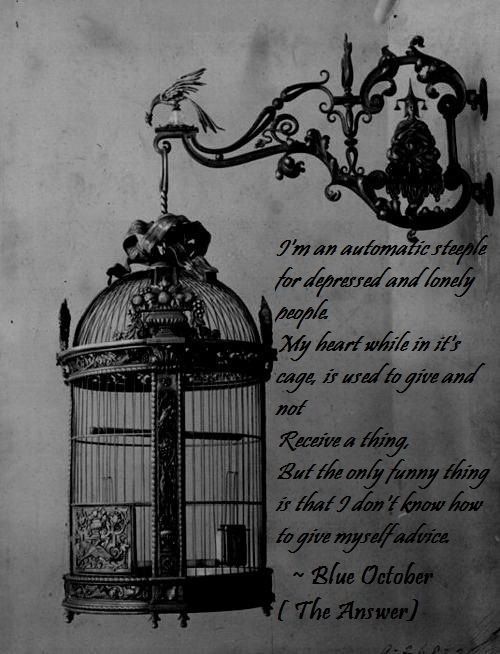 I'm an automatic steeple
for depressed and lonely
people.
My heart while in it's
cage, is used to give and
not
Receive a thing,
But the only funny thing
is that I don't know how
to give myself advice.
~ Blue October
( The Answer)